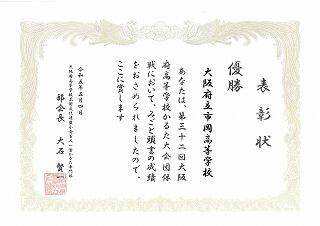 表彰状
優勝
大阪府立市岡高等学校
あなたは、第三十二回大阪
府高等学校かるた大会団体
戦において、みごと頭書の成績
をおさめられましたので、
ここに賞します
令和五年五月
部会長 大石 賢一